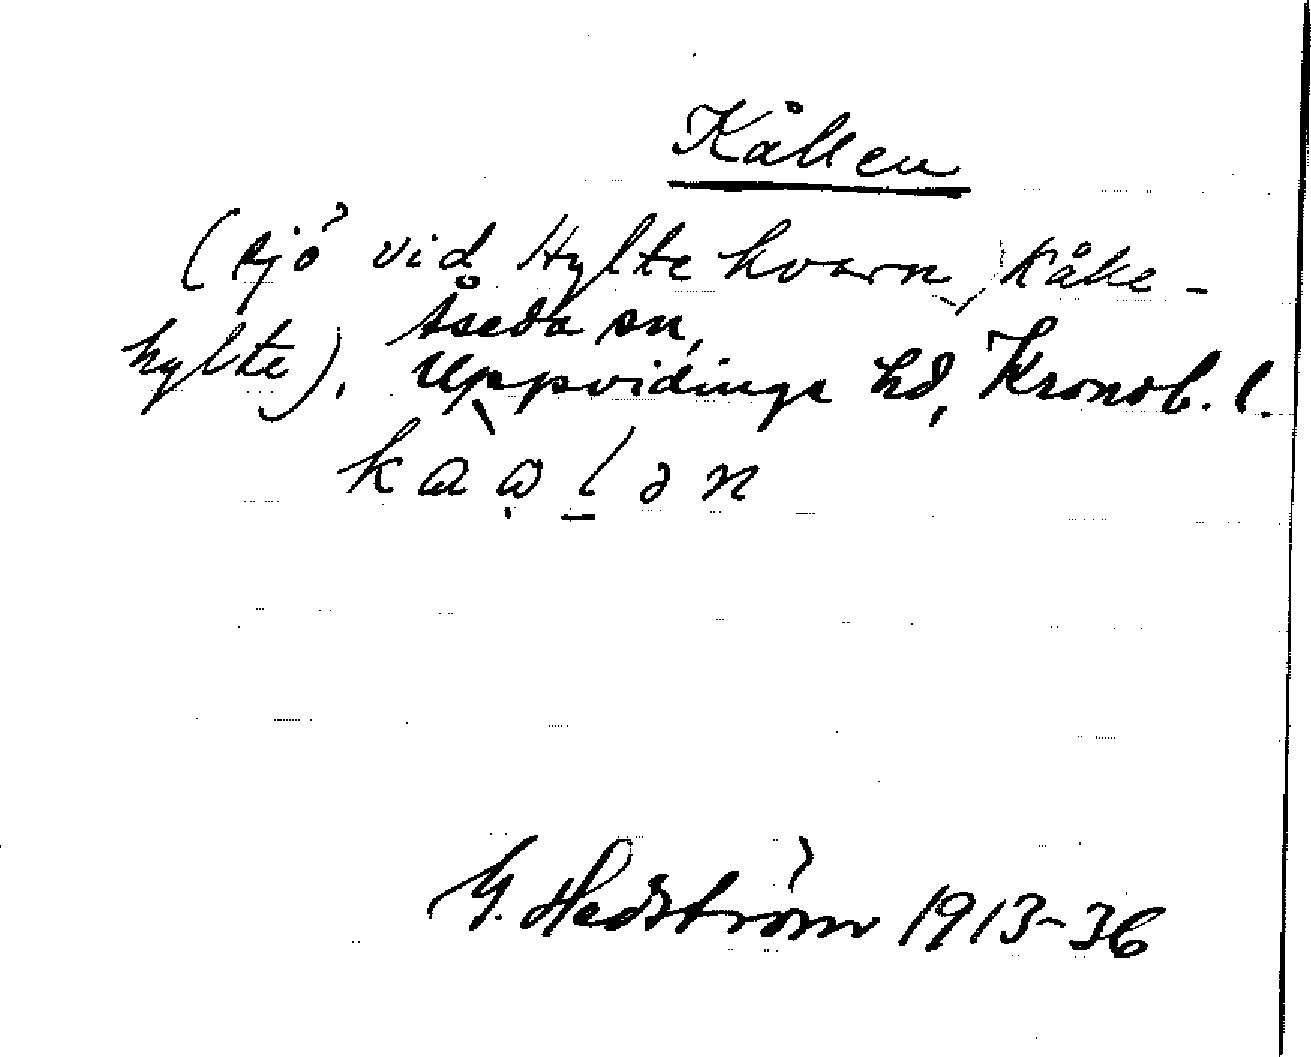 Kållen
(sjö vid Hylte kvarn, Kåke-
hylte). Åseda sn,
Uppvidinge hd, Kronob. l.
G. Hedström 1913-36